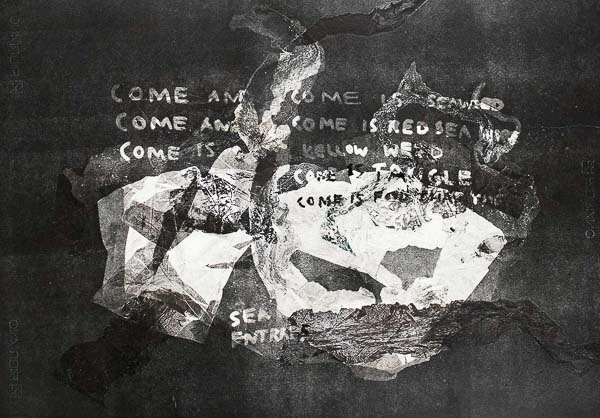 COME AN COME IS SEAWEED
COME AN COME IS RED SEA
COME IS KELLOW WEED
COME IS TANGLE
COME IS FOOD
SEA
ENTRA